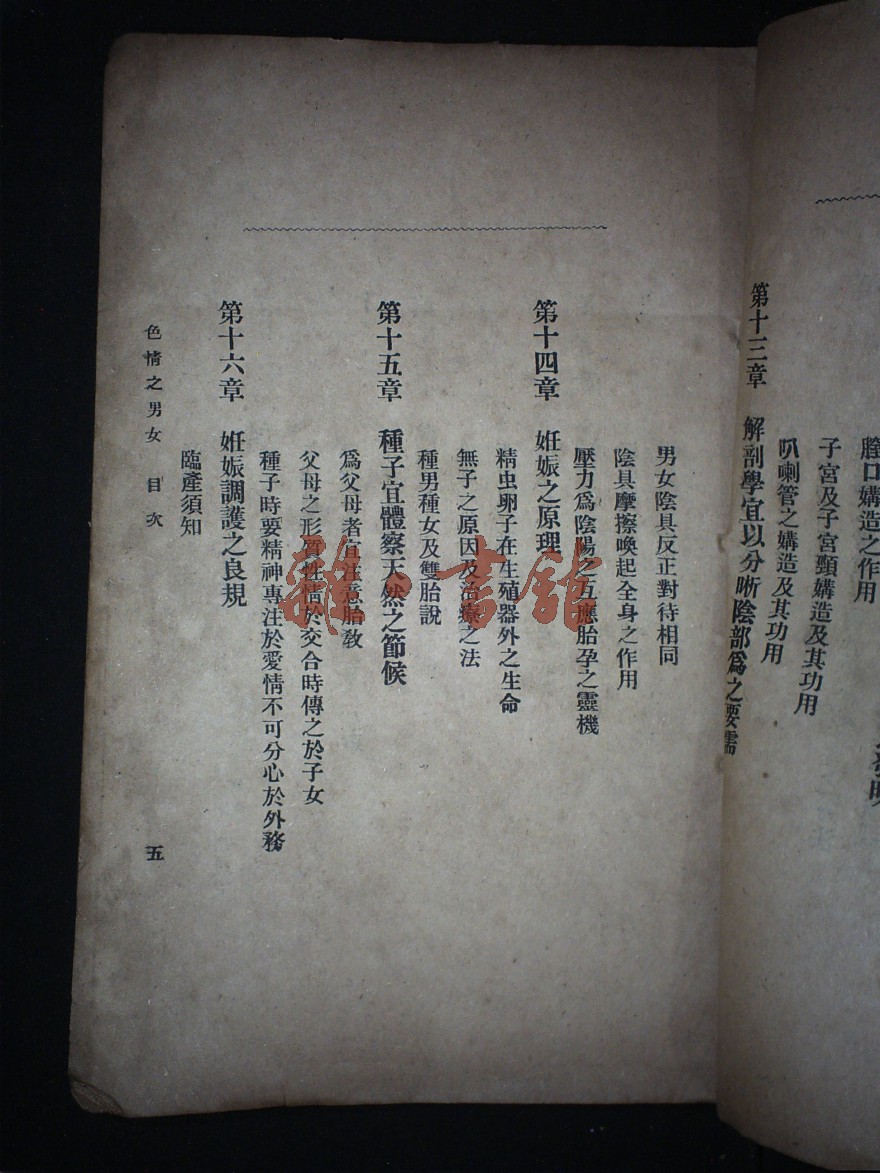 膣口媾造之作用
子宮及子宮頸媾造及其功用
叭喇管之媾造及其功用
第十三章 解剖學宜以分晰陰部爲之要需
男女陰具反正對待相同
陰具摩擦喚起全身之作用
壓力爲陰陽之互應胎孕之靈機
第十四章 姙娠之原理
精虫卵子在生殖器外之生命
無子之原因及治療之法
種男種女及雙胎說
第十五章 種子宜體察天然之節候
爲父母者宜注意胎教
父母之形質性情於交合時傳之於子女
種子時要精神專注於愛情不可分心於外務
第十六章 姙娠調護之良規
臨產須知
色情之男女 目次 五
雜·書館